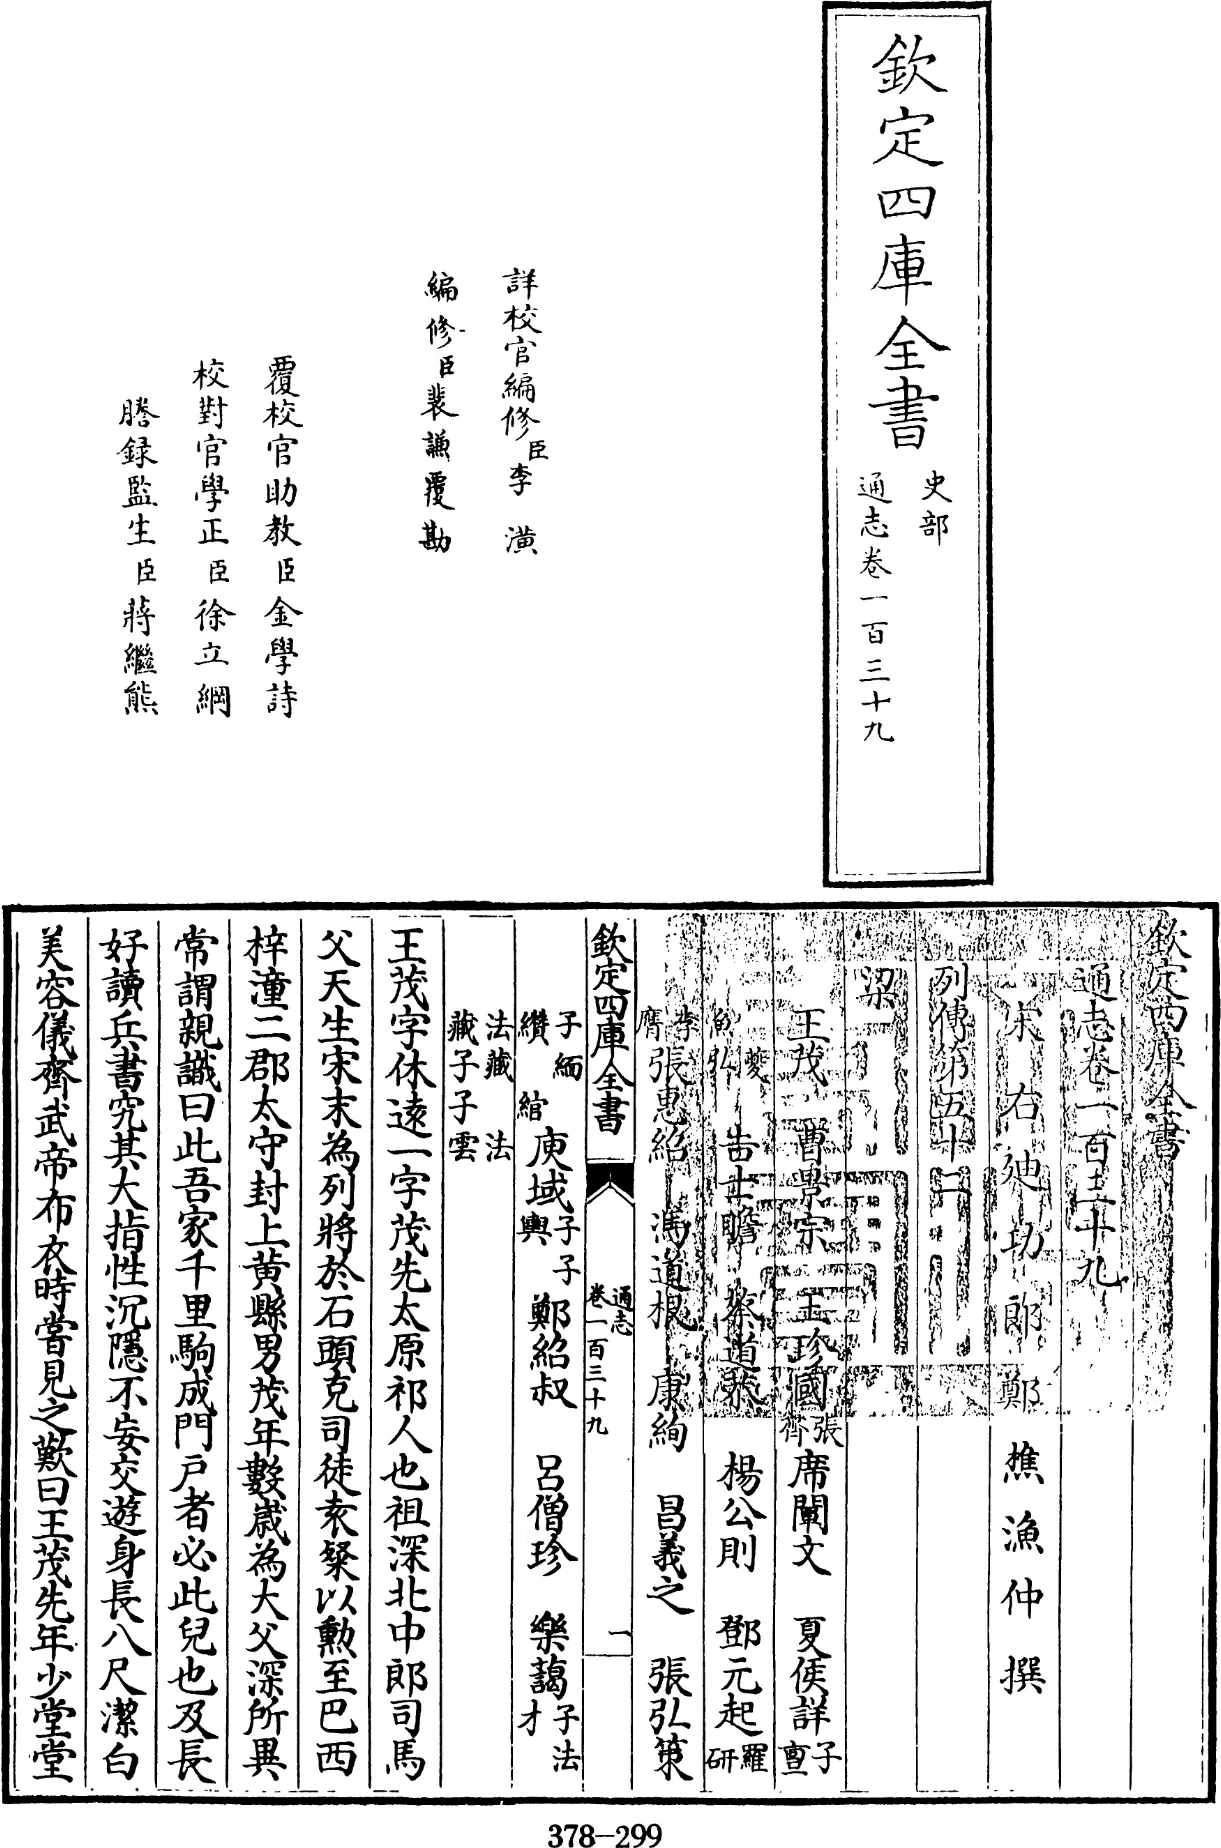 欽定四庫全書
史部
通志卷一百三十九
詳校官編修臣李潢
編修臣裴謙覆勘
覆校官助教臣金學詩
校對官學正臣徐立綱
謄錄監生臣蔣繼熊
欽定四庫全書
通志卷一百三十九
宋右迪功郎鄭樵漁仲撰
列傳第五十二
梁
王茂 曹景宗 王珍國張齊席闡文 夏侯詳子亶
夔魚弘 吉士瞻 蔡道恭 楊公則 鄧元起羅研
李膺張惠紹 馮道根 康絢 昌義之 張弘策
欽定四庫全書
通志
卷一百三十九
一
子緬纘綰庾域子子輿 鄭紹叔 呂僧珍 樂藹子法才
法藏法藏子子雲
王茂字休遠一字茂先太原祁人也祖深北中郎司馬
父天生宋末為列將於石頭克司徒袁粲以勲至巴西
梓潼二郡太守封上黄縣男茂年數歲為大父深所異
常謂親識曰此吾家千里駒成門戶者必此兒也及長
好讀兵書究其大指性沉隱不妄交遊身長八尺潔白
美容儀齊武帝布衣時嘗見之歎曰王茂先年少堂堂
378-299